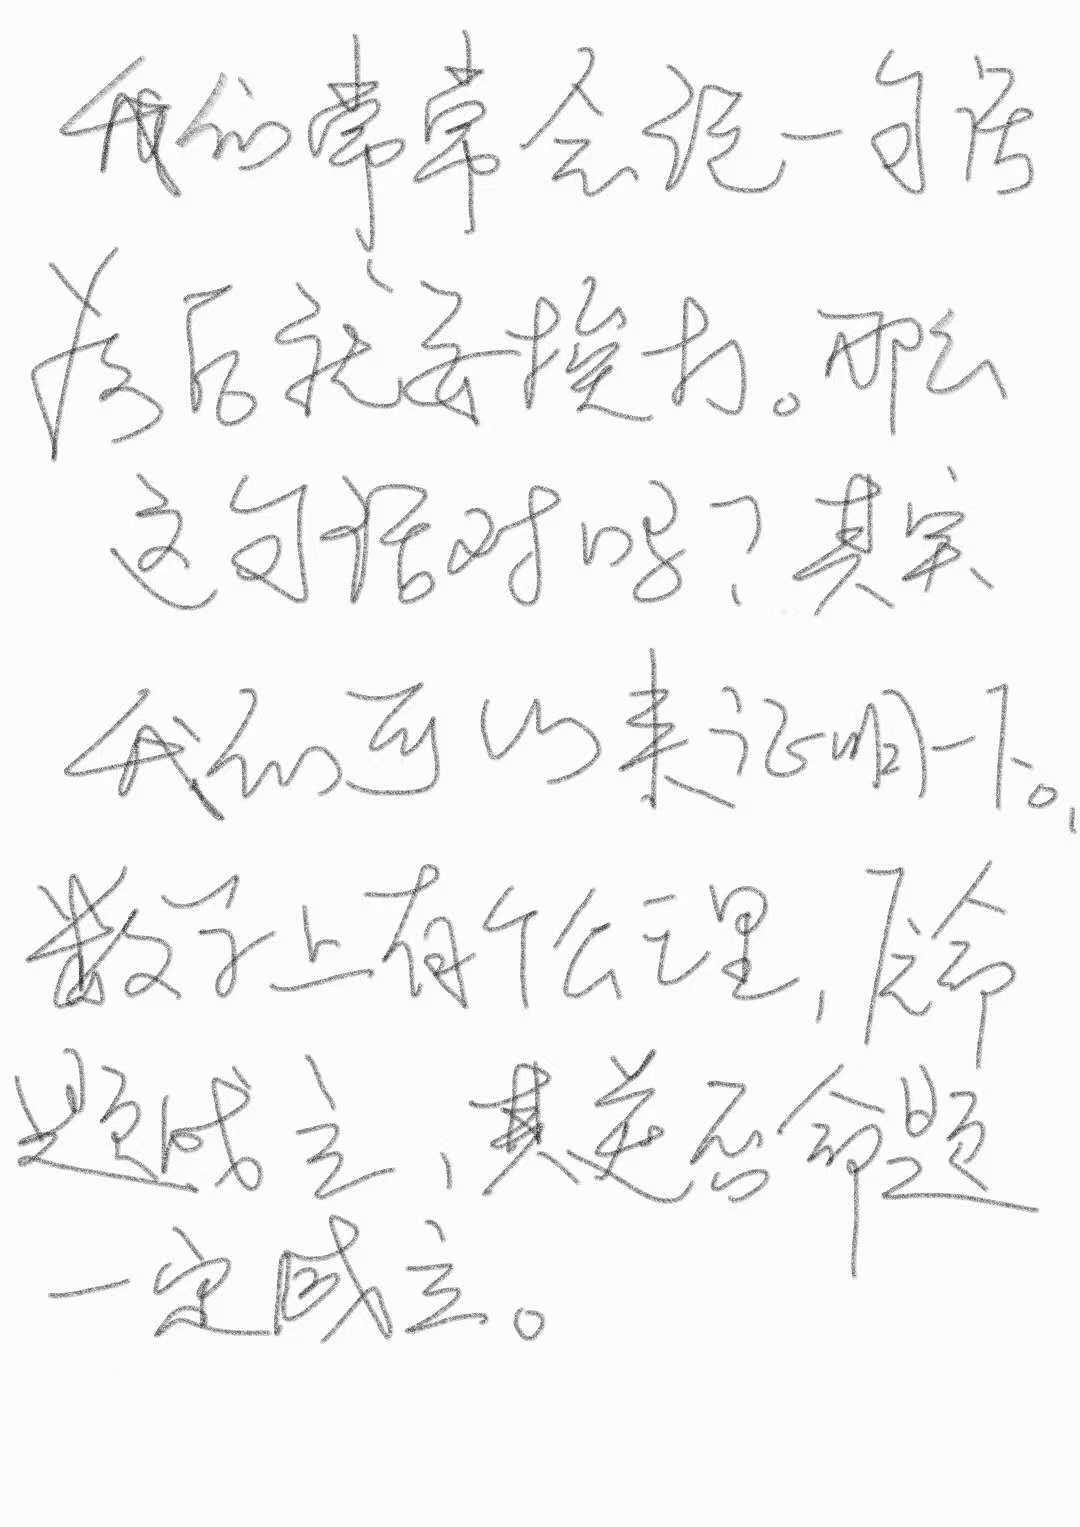 我们常常会说一句话
落后就要挨打。那么
这句话对吗？其实
我们可以来证明一下。
数学上有个公理，原命
题成立，其逆否命题
一定成立。